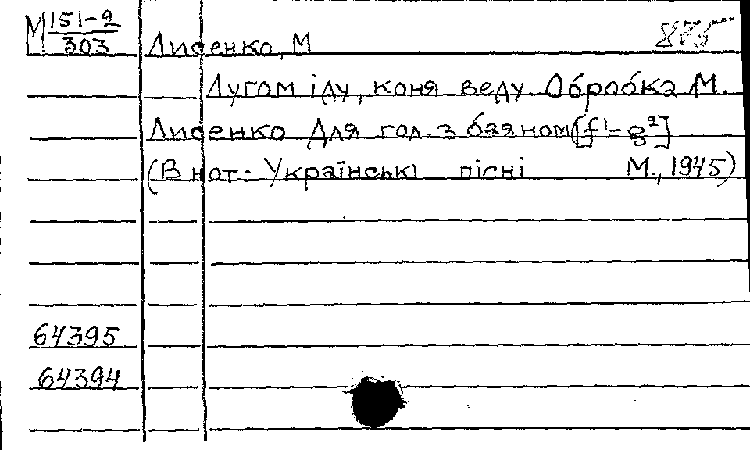 М 151-2/303 Лисенко, М 875
Лугом іду, коня веду. Обробка М.
Лисенко Для гол. з баяном [f¹-g²]
(В нот.: Українські пісні М., 1945)
64395
64394